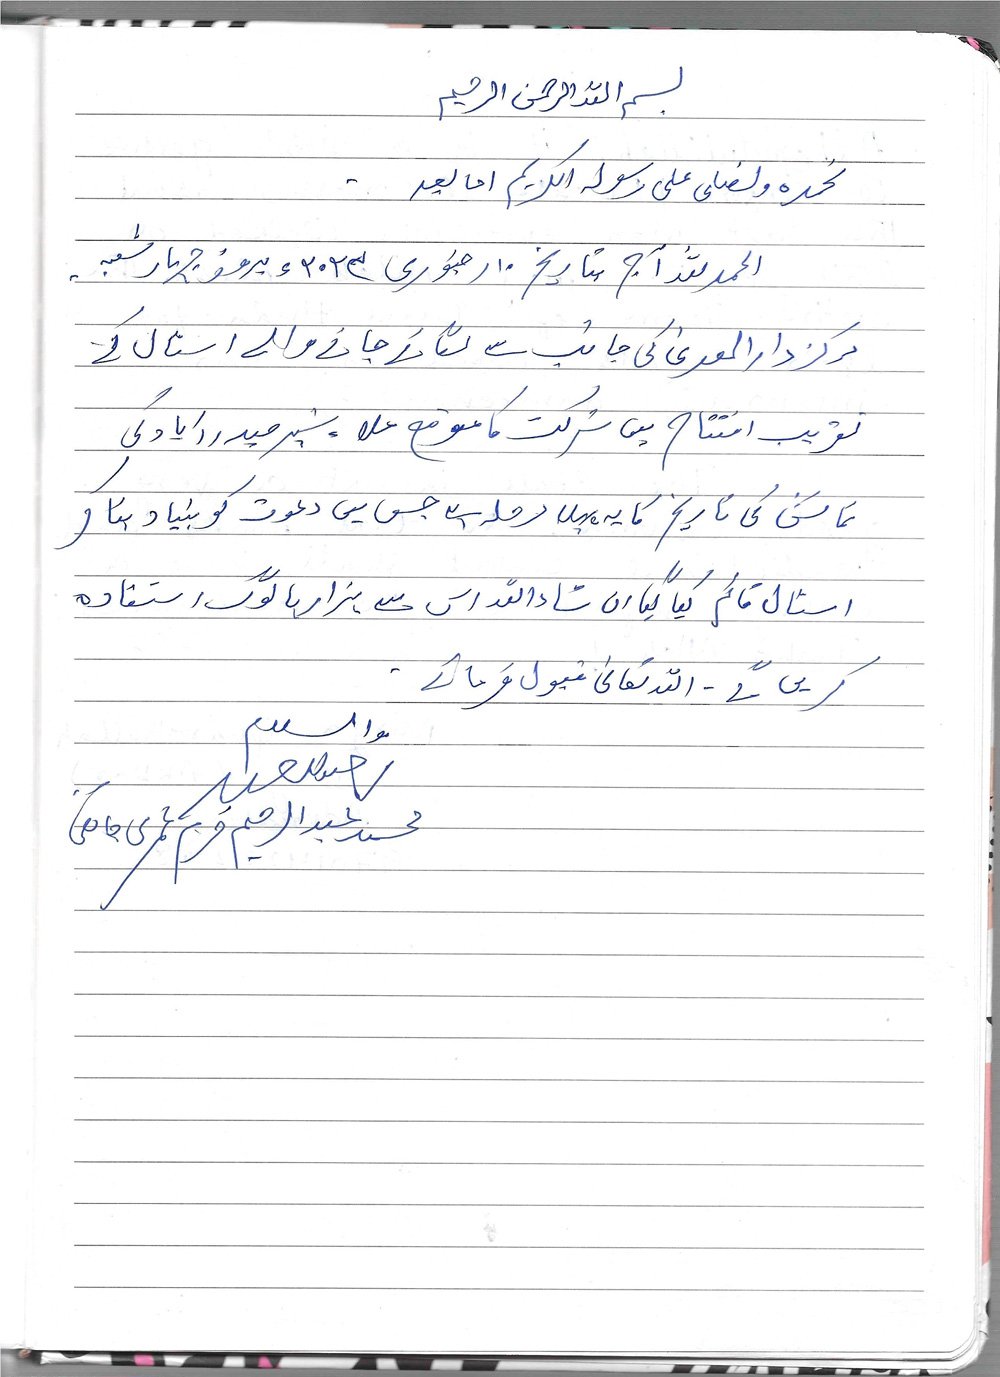 بسم اللہ الرحمن الرحیم
نحمدہ ونصلی علی رسولہ الکریم اما بعد ۔
الحمد للہ آج بتاریخ ۱۰/ جنوری ۲۰۲۴ء بروز چہار شنبہ
مرکز دار الھدیٰ کی جانب سے لگائے جانے والے اسٹال کے
تقریب افتتاح میں شرکت کا موقع ملا ۔ شہر حیدرآباد کی
نمائش کی تاریخ کا یہ پہلا مرحلہ ہے جس میں دعوت کو بنیاد بنا کر
اسٹال قائم کیا گیا ان شاء اللہ اس سے ہزارہا لوگ استفادہ
کریں گے ۔ اللہ تعالیٰ قبول فرمائے ۔
والسلام
محمد عبد الرحیم خرم عمری جامعی